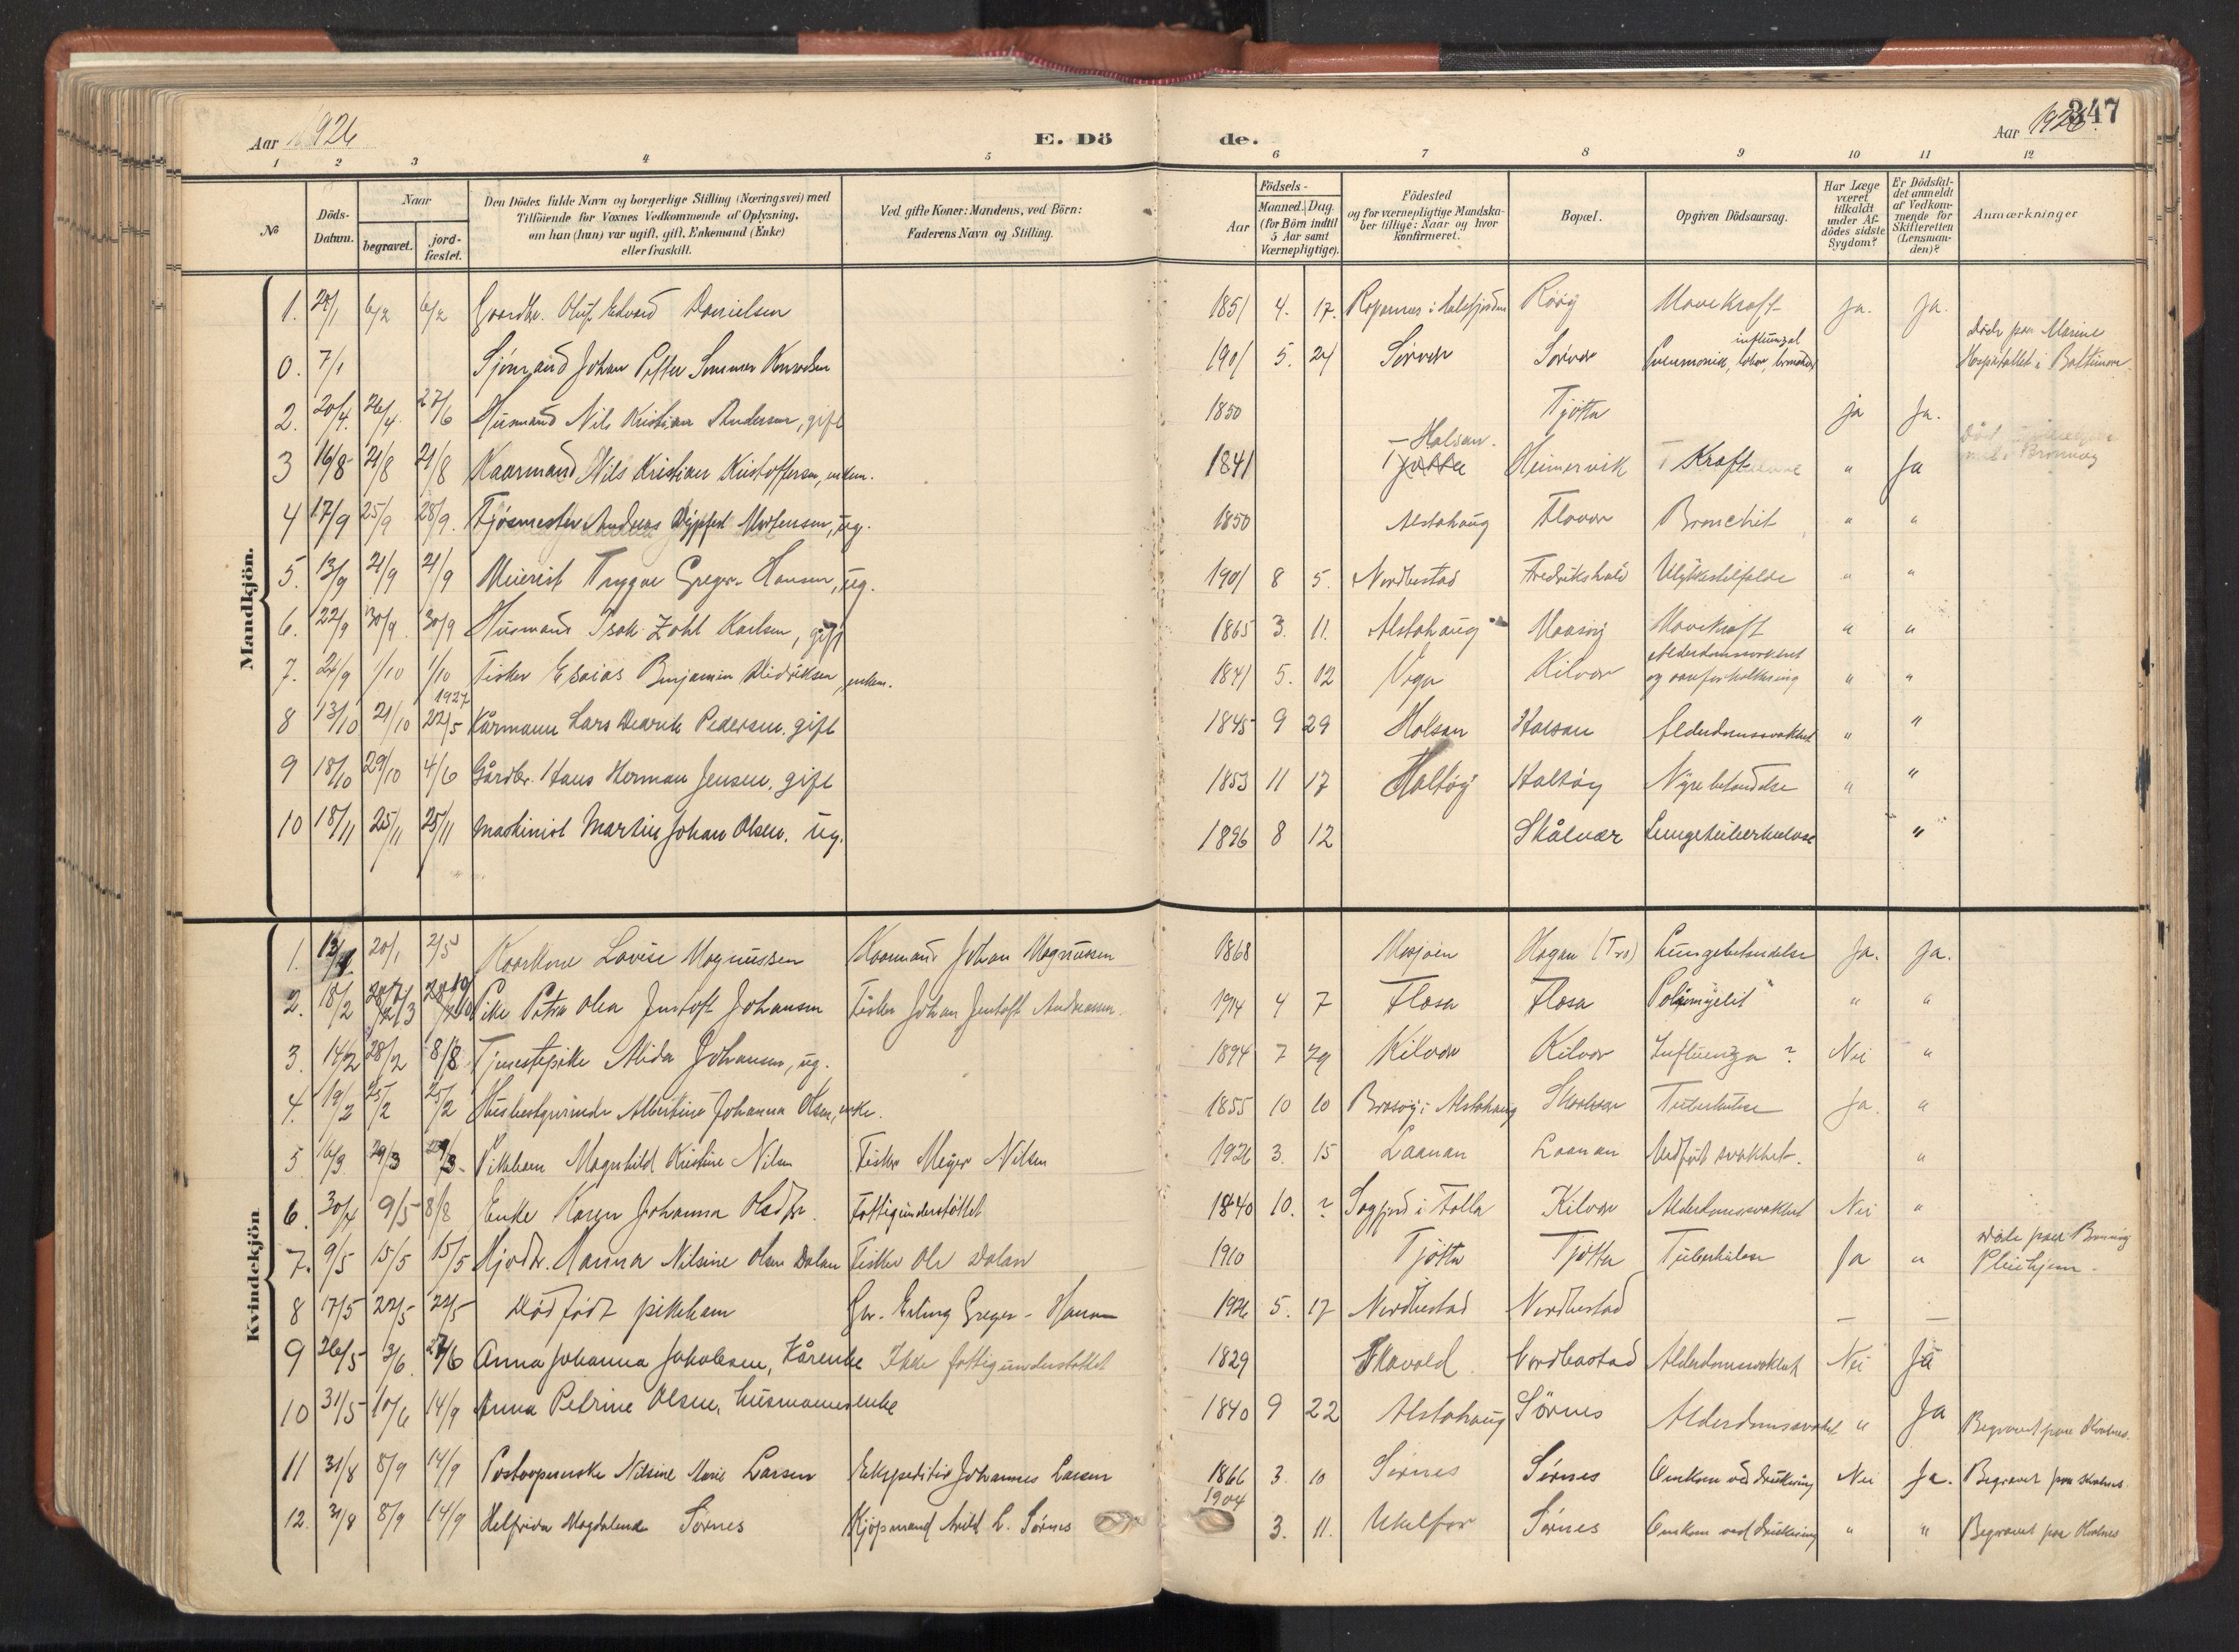 Aar 1926
E. Döde.
Aar 1926.
347
1 2 3 4 5 6 7 8 9 10 11 12
№
Döds-Datum.
Naar
begravet.
jord-fæstet.
Den Dödes fulde Navn og borgerlige Stilling (Næringsvei) med
Tilföiende for Voxnes Vedkommende af Oplysning,
om han (hun) var ugift, gift, Enkemand (Enke)
eller fraskilt.
Ved gifte Koner: Mandens, ved Börn:
Faderens Navn og Stilling.
Födsels-
Aar
Maaned. Dag.
(for Börn indtil
5 Aar samt
Værnepligtige).
Födested
og for værnepligtige Mandska-
ber tillige: Naar og hvor
konfirmeret.
Bopæl.
Opgiven Dödsaarsag.
Har Læge
været
tilkaldt
under Af-
dödes sidste
Sygdom?
Er Dödsfal-
det anmeldt
af Vedkom-
mende for
Skifteretten
(Lensman-
den)?
Anmærkninger
Mandkjön.
1. 6/2 6/2 Gaardbr. Oluf Edvard Danielsen 1851 4. 17. Røøy Mavekræft ja. ja.
0. 7/1 Sjømand Johan Petter Knudsen 1901 5. 24 Sørvær Sørvær Pneumonia, influenzal Døde paa Marine Hospitallet i Baltimore.
2. 20/4 26/4 27/6 Husmand Nils Kristian Andersen, gift 1850 Tjøtta ja Ja.
3 16/8 21/8 21/8 Kaarmand Nils Kristian Kristoffersen, enkem. 1841 Tjøtta Halsan. Heimervik Kræft " Ja
4 17/9 25/9 28/9. Fjøsmester Andreas Mortensen, ug. 1850 Alstahaug Flovær Bronchit " "
5. 13/9 21/9 21/9 Meierist Trygve Greger Hansen, ug. 1901 8 5. Nordbustad Fredrikshald Ulykkestilfælde " "
6. 22/9 30/9 30/9 Husmand Isak Zahl Karlsen, gift 1865 3. 11. Alstahaug Maasøy Mavekræft " "
7. 24/9 1/10 1/10 Fisker Esaias Benjamin Didriksen, enkem. 1841 5. 12 Vega Kilvær Alderdomssvakhet og aareforkalkning " "
8 13/10 21/10 1927 22/5 Kårmann Lars Pedersen. gift 1845 9 29 Halsan Halsan Alderdomssvakhet " "
9 18/10 29/10 4/6 Gårdbr. Hans Herman Jensen. gift 1853 11 17 Haltøy Haltøy Nyrebetændelse " "
10 18/11 25/11 25/11 Maskinist Martin Johan Olsen. ug. 1896 8 12 Skålvær Lungetuberkulose "
Kvindekjön
1. 20/1 2/5 Kaarkone Lovise Magnussen Kaarmand Johan Magnussen 1868 Mosjøen Hagan (Tro) Lungebetændelse Ja. Ja.
2. 18/2 Pike Petra Olea Jentoft Johansen Fisker Johan Jentoft Andreassen. 1914 4 7 Flosa Flosa Poliomyelit " "
3. 14/2 28/2 8/8 Tjenestepike Alida Johansen, ug. 1894 7 29 Kilvær Kilvær Influenza ? Nei "
4. 19/2 25/2 25/2 Husbestyrerinde Albertine Johanna Olsen, enke. 1855 10 10 Brasøy i Alstahaug Skaalvær Tuberkulose Ja. "
5 16/3. 29/3 29/3 Pikebarn Magnhild Kristine Nilsen Fisker Meyer Nilsen 1926 3. 15 Laanan Laanan Medfødt svakhet. "
6. 30/4 9/5 8/8 Enke Karen Johanna Olsdtr. Fattigunderstøttet 1840 10. ? Sagfjord i Folla Kilvær Alderdomssvakhet Nei "
7. 9/5 15/5 15/5 Hjvdt. Hanna Nilsine Olsen Dalan Fisker Ole Dalan 1910 Tjøtta Tjøtta Tuberkulose Ja " Døde paa Brønnøy Pleiehjem.
8 17/5 22/5 22/5 Dødfødt pikebarn Gbr. Erling Greger-Hansen 1926 5. 17 Nordbustad Nordbustad — —
9 26/5 3/6. 27/6 Anna Johanna Jakobsen, Kårenke Ikke fattigunderstøttet 1829 Skavold Nordbostad Alderdomssvakhet Nei Ja
10 31/5 10/6 14/9 Anna Petrine Olsen, husmannsenke 1840 9 22 Alstahaug Sørnes Alderdomssvakhet " Ja Begravet paa Alsta
11 31/8 8/9 14/9 Postaapnerske Nilsine Marie Larsen Ekspeditør Johannes Larsen 1866 3. 10 Sørnes Sørnes Omkom ved drukning Nei Ja. Begravet paa
12. 31/8 8/9 14/9 Helfrida Magdalena Sørnes Kjøpmand Arild L. Sørnes 1904 3. 11. Sørnes Omkom ved drukning " " Begravet paa